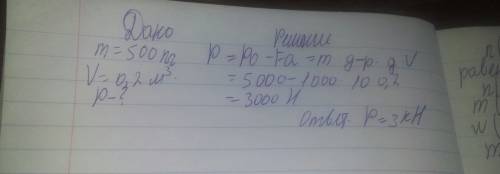 Дано
m = 500 кг
V = 0,2 м³
p - ?
Решение
P = Po - Fa = m g - p. g V
= 5000 - 1000. 10 0,2
= 3000 H
Ответ. P = 3 кН
n
m